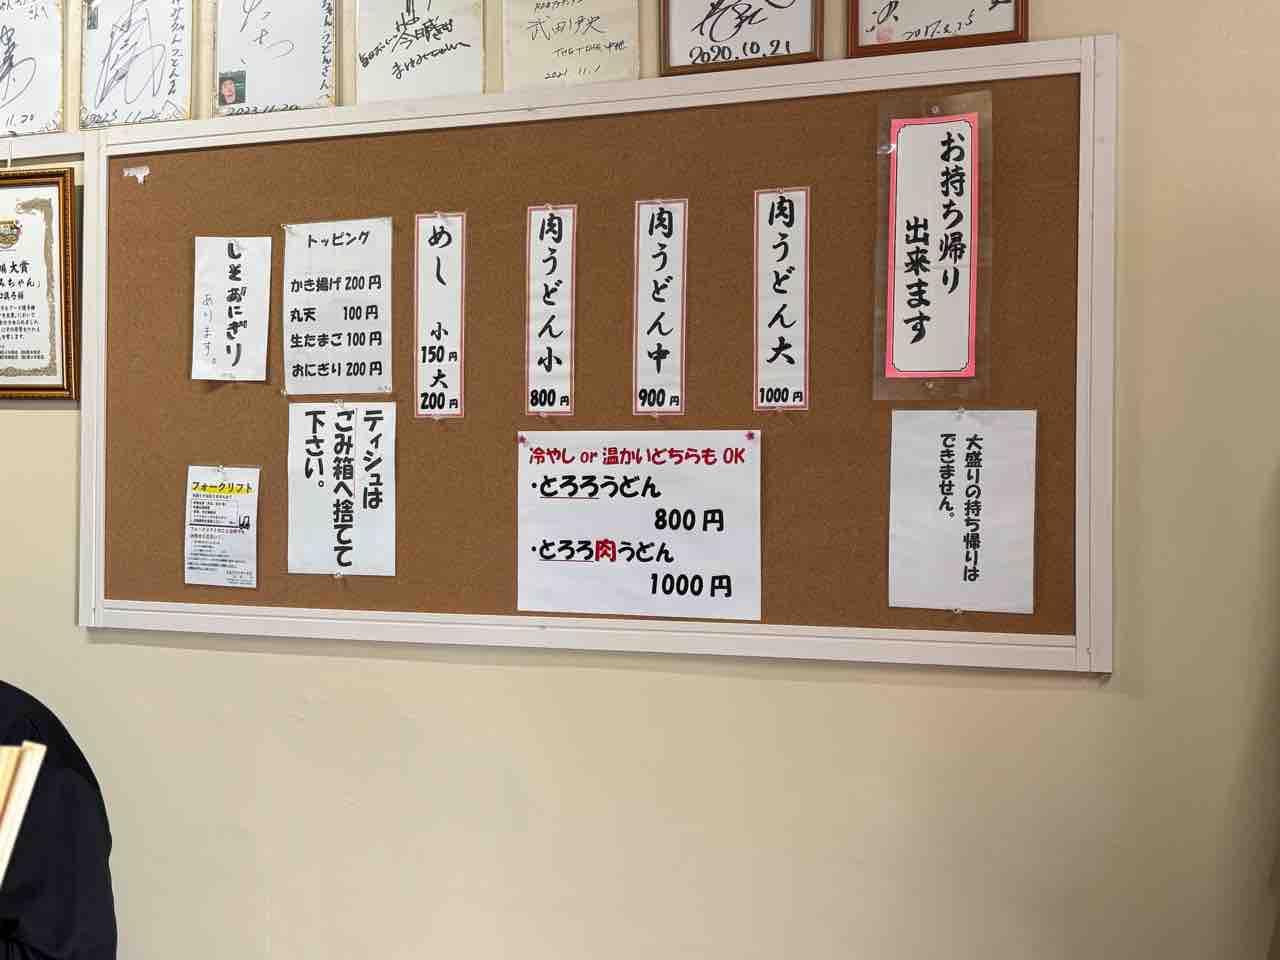 2020.10.21
2021.11.1
2023.11.20
11.20
大賞
お持ち帰り
出来ます
肉うどん大
1000円
肉うどん中
900円
肉うどん小
800円
めし
小
150円
大
200円
トッピング
かき揚げ200円
丸天 100円
生たまご100円
おにぎり200円
しそおにぎり
あります。
大盛りの持ち帰りは
できません。
冷やし or 温かいどちらも OK
・とろろうどん
800円
・とろろ肉うどん
1000円
ティシュは
ごみ箱へ捨てて
下さい。
フォークリフト